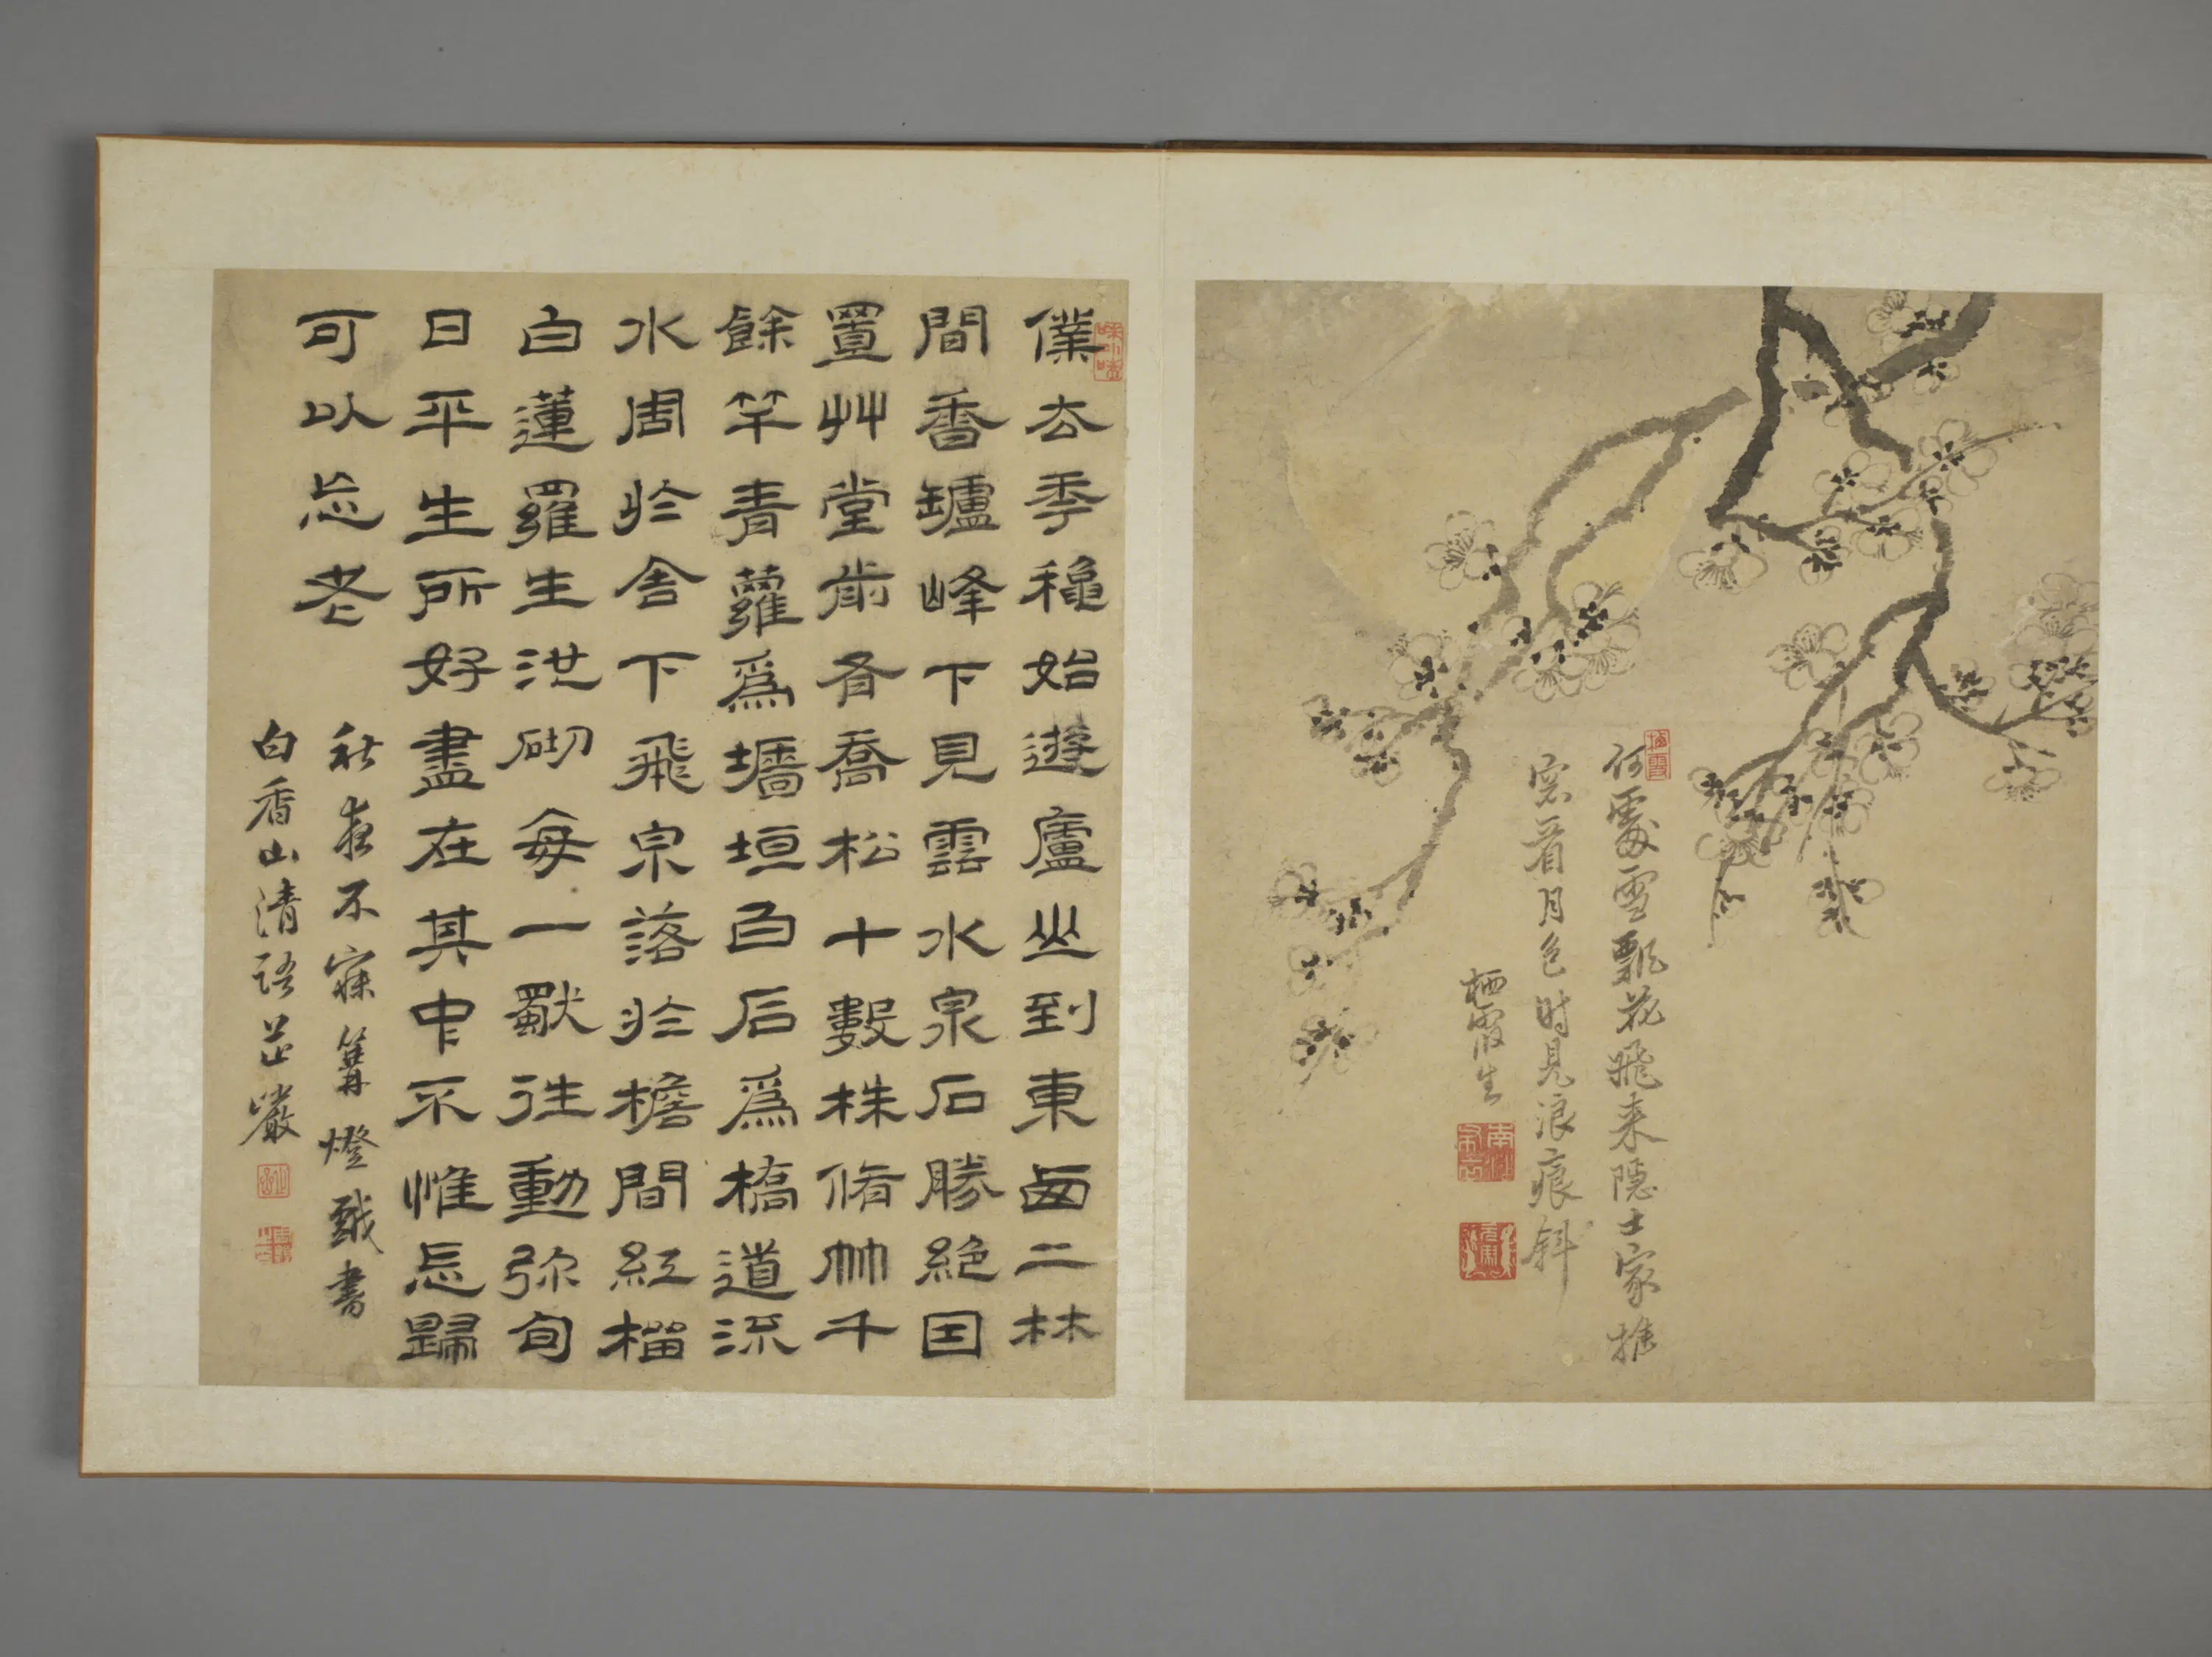 何處雪飄花飛来隐士家推
窓看月色时見浪痕斜
栖霞生
僕去季穐始遊廬山到東西二林
間香罏峰下見雲水泉石勝絕因
置艸堂前有喬松十數株脩竹千
餘竿青蘿爲墻垣白石爲橋道流
水周於舍下飛泉落於檐間紅榴
白蓮羅生池砌每一獨往動弥旬
日平生所好盡在其中不惟忘歸
可以忘老
秋夜不寐篝燈戲書
白香山清語芷巖